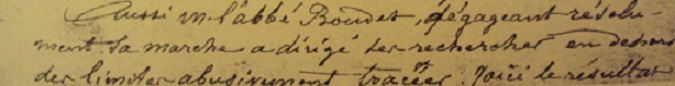 Aussi m. l'abbé Boudet, dégageant résolu-
ment sa marche a dirigé ses recherches en dehors
des limites abusivement tracées. Voici le résultat